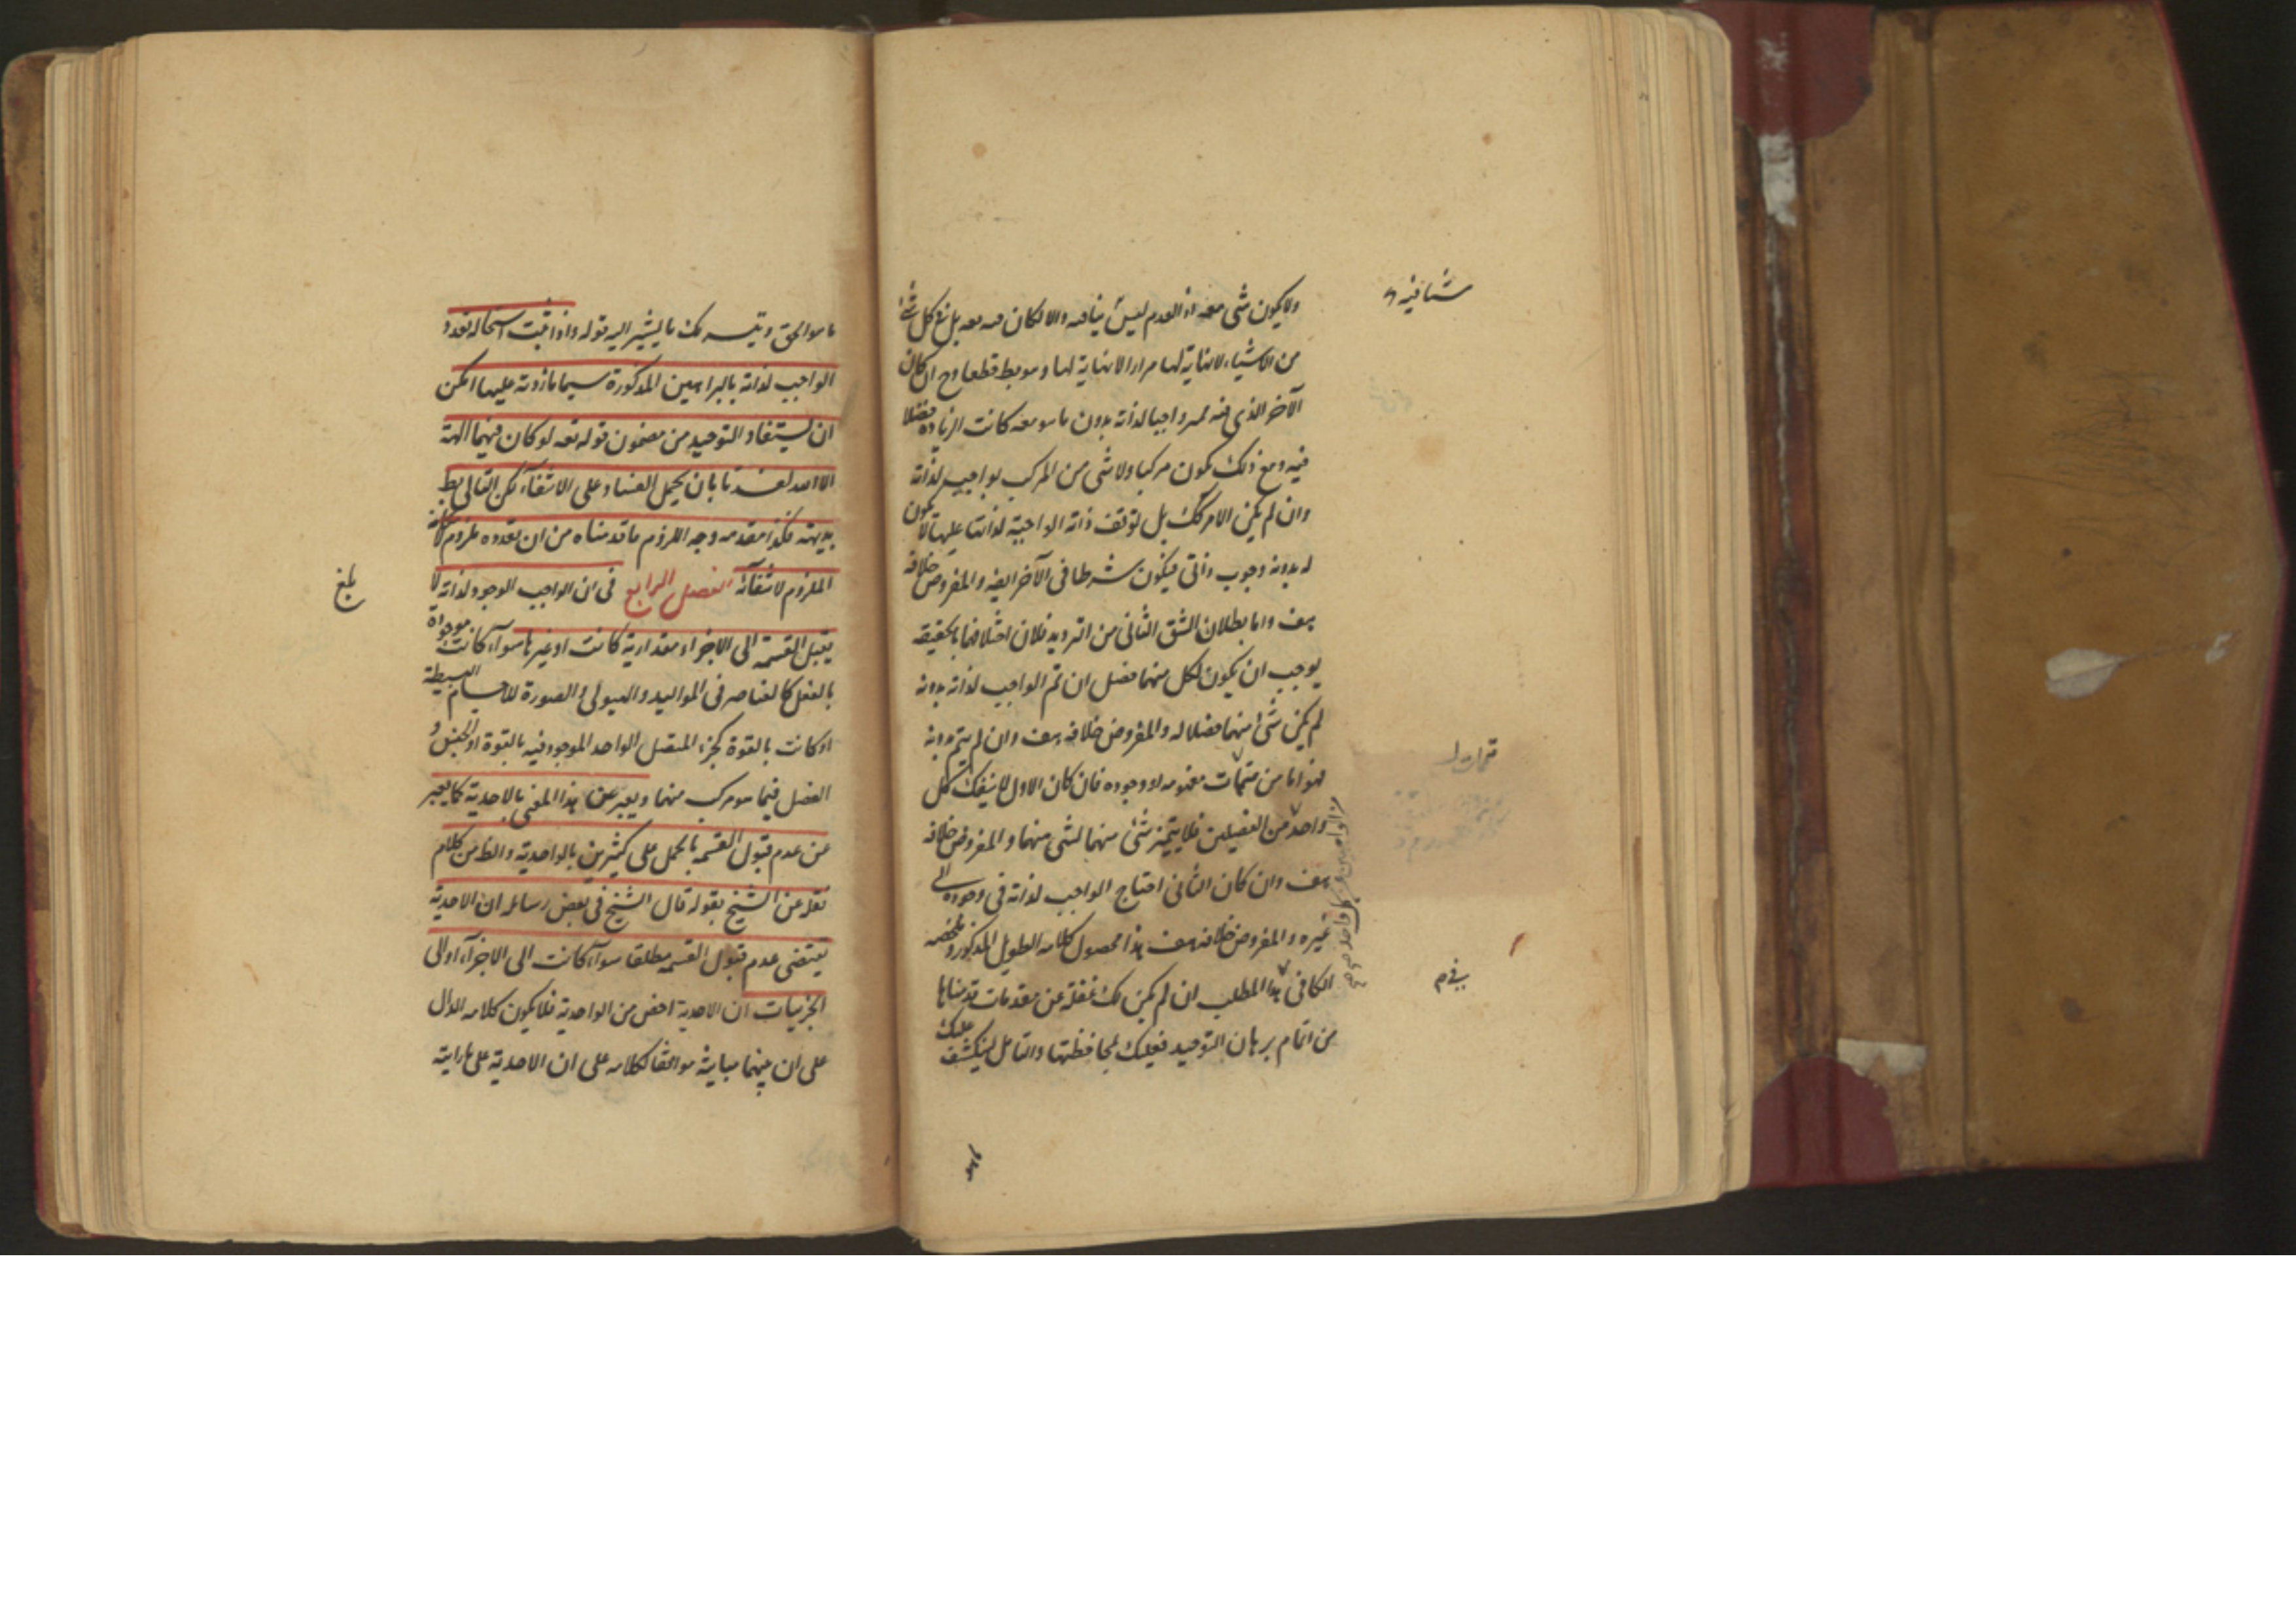 ولا يكون شئ معه اذ العدم ليس ينافيه والا لكان معه بل نوع كل شئ
من الاشياء لانهاية لها مرارا لانهاية لها وهو بط قطعا وح ان كان
الآخر الذى واجبا لذاته بدون ما هو معه كانت الزيادة فضلا
فيه ومع ذلك يكون مركبا ولا شئ من المركب بواجب لذاته
وان لم يكن الامر كك بل توقف ذاته الواجبة لذاتها عليها لا يكون
له بدونه وجوب ذاتى فيكون شرطا فى الآخر ايضا والمفروض خلافه
هف واما بطلان الشق الثانى من الترديد فلان اختلافهما بالحقيقة
يوجب ان يكون لكل منهما فصل ان تم الواجب لذاته بدونه
لم يكن شئ منهما فصلا له والمفروض خلافه هف وان لم يتم بدونه
فهو اما من متممات مفهومه او وجوده فان كان الاول لا ينفك كل
واحد من الفصلين فلا يتميز شئ منهما لشئ منهما والمفروض خلافه
هف وان كان الثانى احتاج الواجب لذاته فى وجوده الى
غيره والمفروض خلافه هف هذا محصول كلامه الطويل المذكور وملخصه
الكافى هذا المطلب ان لم يكن لك غفلة عن مقدمات قدمناها
من اتمام برهان التوحيد فعليك بمحافظتها والتأمل لينكشف عليك
ما هو الحق ويتيسر لك ما يشير اليه قوله واذا ثبت استحالة تعدد
الواجب لذاته بالبراهين المذكورة سيما ما زدته عليها امكن
ان يستفاد التوحيد من مضمون قوله تعه لو كان فيهما الهة
الا الله لفسدتا بان يحمل الفساد على الانتفاء لكن التالى بط
بديهة فكذا مقدمه وجه اللزوم ما قدمناه من ان تعدده ملزوم لامكانه
الملزوم لانتفائه الفصل الرابع فى ان الواجب الوجود لذاته لا
يقبل القسمة الى الاجزاء مقدارية كانت او غيرها سواء كانت موجودة
بالفعل كالعناصر فى المواليد والهيولى والصورة للاجسام البسيطة
او كانت بالقوة كجزء المتصل الواحد الموجود فيه بالقوة او الجنس و
الفصل فيما هو مركب منهما ويعبر عن هذا المعنى بالاحدية كما يعبر
عن عدم قبول القسمة بالحمل على كثيرين بالواحدية والظ من كلام
نقله عن الشيخ بقوله قال الشيخ فى بعض رسائله ان الاحدية
يقتضى عدم قبول القسمة مطلقا سواء كانت الى الاجزاء او الى
الجزئيات ان الاحدية اخص من الواحدية فلا يكون كلامه الدال
على ان بينهما مباينة موافقا لكلامه على ان الاحدية على ما رايته
بلغ